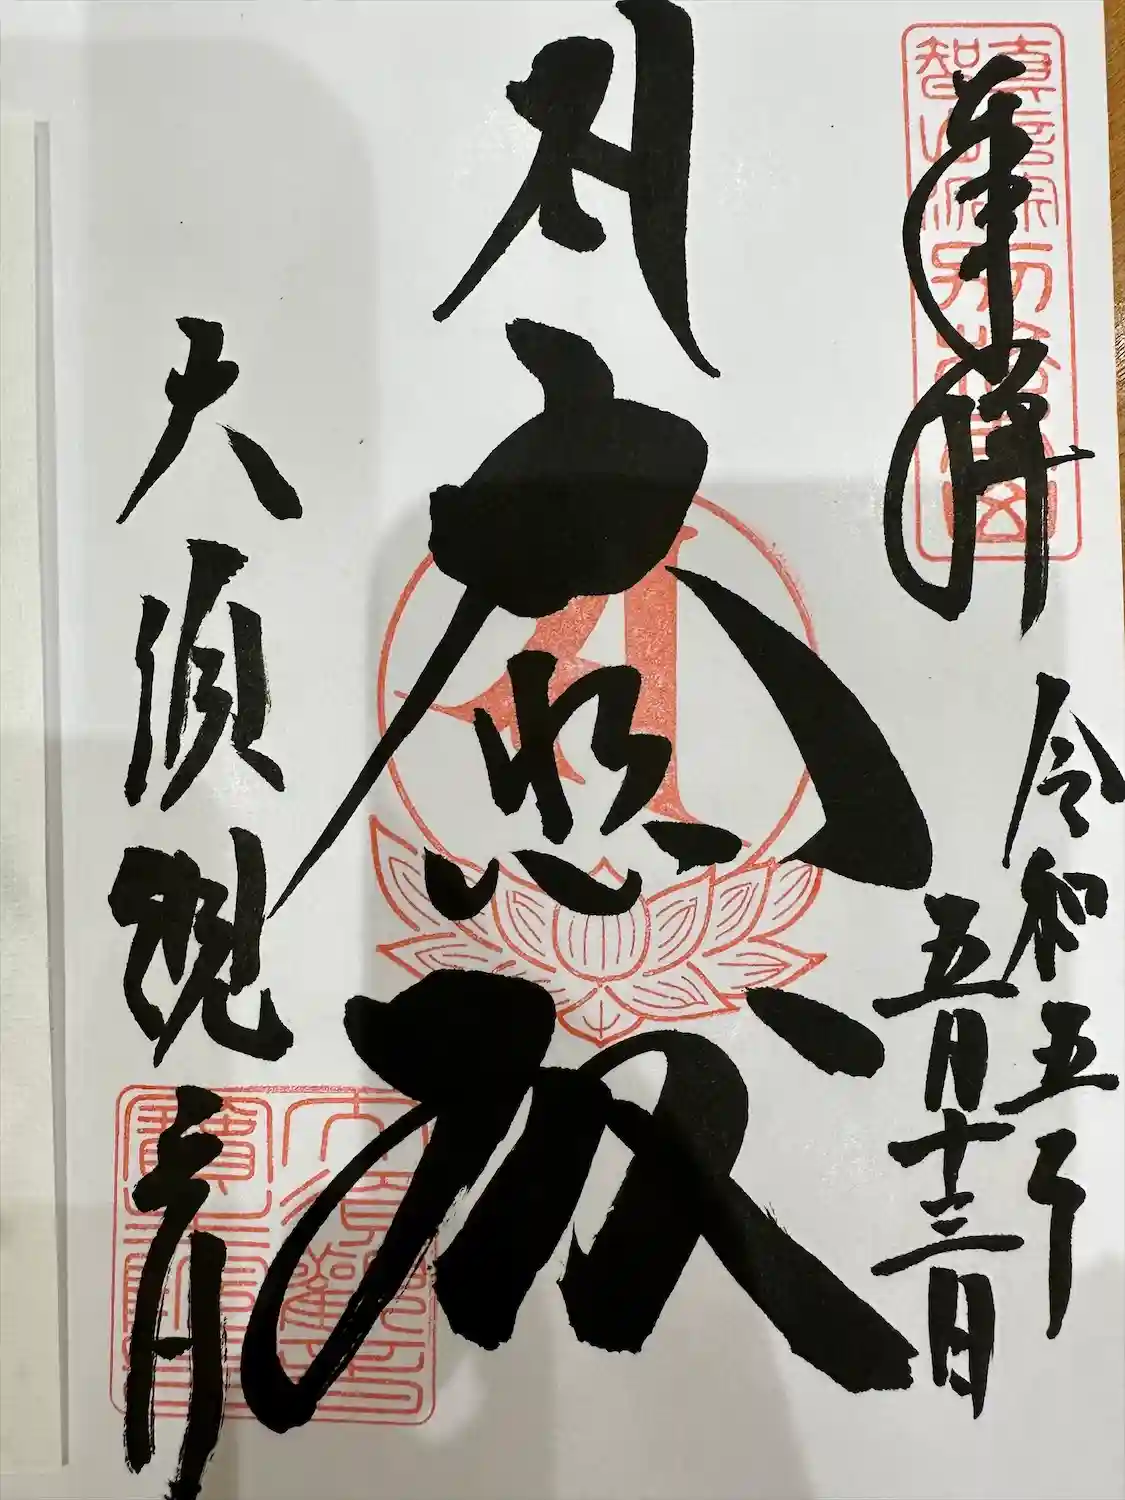 奉拝
真言宗
智山派
別格本山
令和五年
五月十三日
大悲殿
大須観音